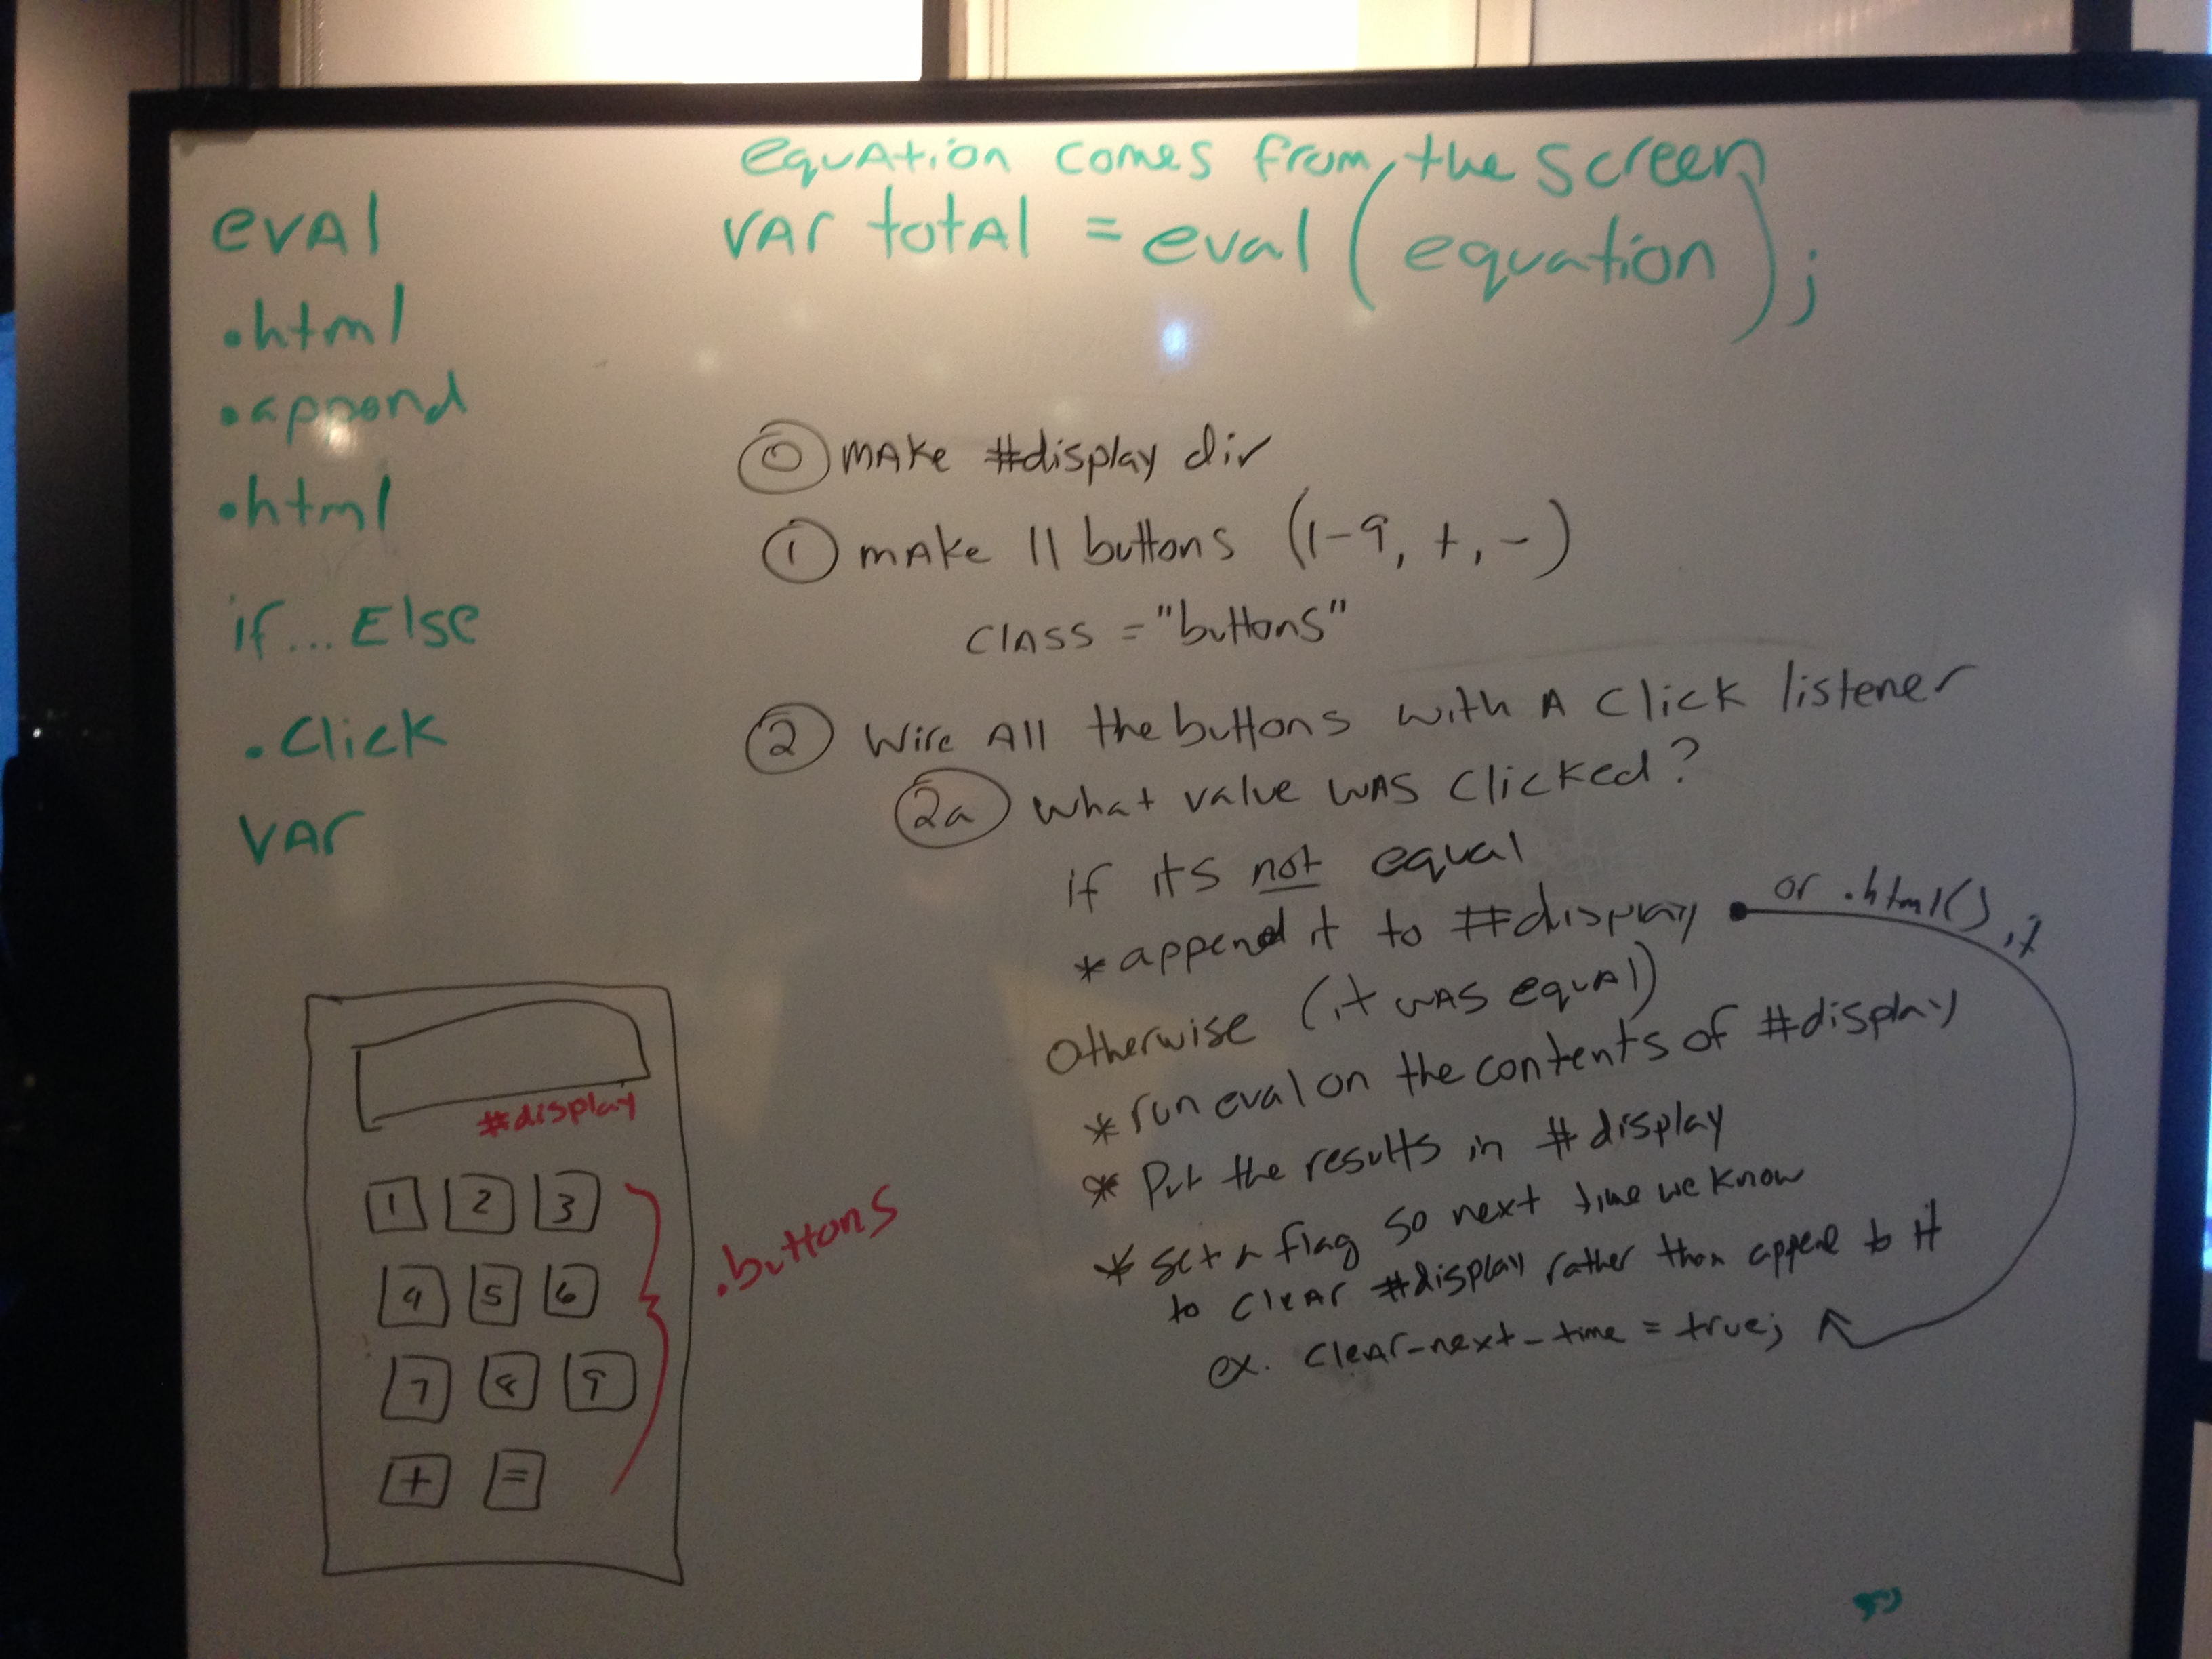 equation comes from the screen
var total = eval(equation);
eval
.html
.append
.html
if...Else
.click
var
0 make #display div
1 make 11 buttons (1-9, +, -)
class="buttons"
2 Wire All the buttons with A click listener
2a what value was clicked?
if its not equal
* append it to #display • or .html() it
Otherwise (it was equal)
* run eval on the contents of #display
* Put the results in #display
* set a flag so next time we know
to clear #display rather than append to it
ex. clear-next-time = true;
#display
1 2 3
4 5 6
7 8 9
+ =
.buttons